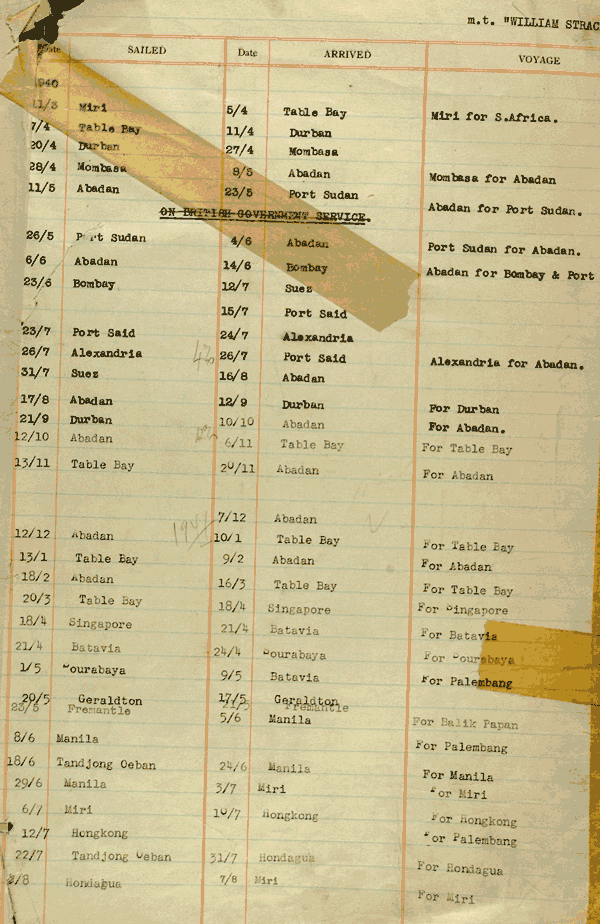 m.t. "WILLIAM STRAC
Date SAILED Date ARRIVED VOYAGE
1940
11/3 Miri 5/4 Table Bay Miri for S.Africa.
7/4 Table Bay 11/4 Durban
20/4 Durban 27/4 Mombasa
28/4 Mombasa 8/5 Abadan Mombasa for Abadan
11/5 Abadan 23/5 Port Sudan Abadan for Port Sudan.
ON BRITISH GOVERNMENT SERVICE.
26/5 Port Sudan 4/6 Abadan Port Sudan for Abadan.
6/6 Abadan 14/6 Bombay Abadan for Bombay & Port
23/6 Bombay 12/7 Suez
15/7 Port Said
23/7 Port Said 24/7 Alexandria
26/7 Alexandria 26/7 Port Said Alexandria for Abadan.
31/7 Suez 16/8 Abadan
17/8 Abadan 12/9 Durban For Durban
21/9 Durban 10/10 Abadan For Abadan.
12/10 Abadan 6/11 Table Bay For Table Bay
13/11 Table Bay 20/11 Abadan For Abadan
7/12 Abadan
1941
12/12 Abadan 10/1 Table Bay For Table Bay
13/1 Table Bay 9/2 Abadan For Abadan
18/2 Abadan 16/3 Table Bay For Table Bay
20/3 Table Bay 18/4 Singapore For Singapore
18/4 Singapore 21/4 Batavia For Batavia
21/4 Batavia 24/4 Sourabaya For Sourabaya
1/5 Sourabaya 9/5 Batavia For Palembang
20/5 Geraldton 17/5 Geraldton
23/5 Fremantle Fremantle
5/6 Manila For Balik Papan
8/6 Manila For Palembang
18/6 Tandjong Oeban 24/6 Manila For Manila
29/6 Manila 3/7 Miri For Miri
6/7 Miri 10/7 Hongkong For Hongkong
12/7 Hongkong For Palembang
22/7 Tandjong Oeban 31/7 Hondagua For Hondagua
3/8 Hondagua 7/8 Miri For Miri